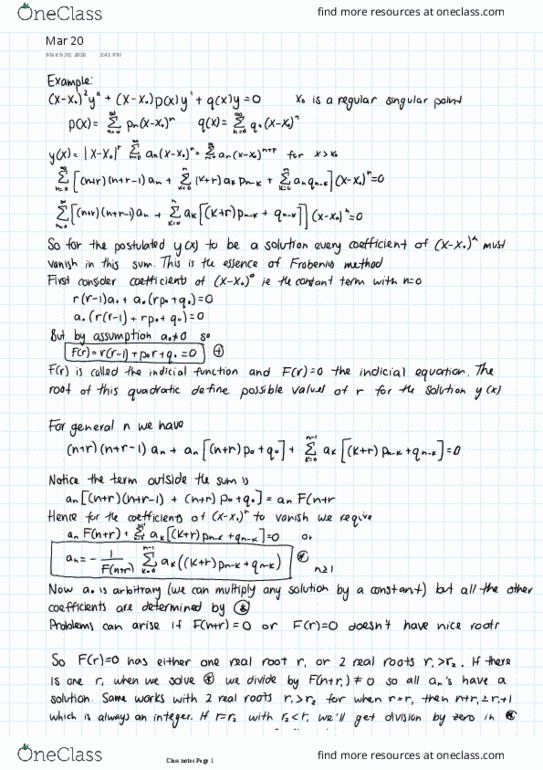 OneClass
find more resources at oneclass.com
Mar 20
March 20, 2020 2:41 PM
Example:
(x-x₀)²y" + (x-x₀)p(x)y' + q(x)y = 0 x₀ is a regular singular point
p(x) = ∑_{n=0}^∞ pₙ(x-x₀)ⁿ q(x) = ∑_{n=0}^∞ qₙ(x-x₀)ⁿ
y(x) = |x-x₀|ʳ ∑_{n=0}^∞ aₙ(x-x₀)ⁿ = ∑_{n=0}^∞ aₙ(x-x₀)ⁿ⁺ʳ for x>x₀
∑_{n=0}^∞ [(n+r)(n+r-1)aₙ + ∑_{k=0}^n (k+r)aₖ pₙ₋ₖ + ∑_{k=0}^n aₖqₙ₋ₖ](x-x₀)ⁿ=0
∑_{n=0}^∞ [(n+r)(n+r-1)aₙ + ∑_{k=0}^n aₖ[(k+r)pₙ₋ₖ + qₙ₋ₖ]](x-x₀)ⁿ=0
So for the postulated y(x) to be a solution every coefficient of (x-x₀)ⁿ must
vanish in this sum. This is the essence of Frobenius method
First consider coefficients of (x-x₀)⁰ ie the constant term with n=0
r(r-1)a₀ + a₀(rp₀+q₀)=0
a₀(r(r-1) + rp₀ + q₀)=0
But by assumption a₀≠0 so
F(r)=r(r-1)+p₀r+q₀=0
F(r) is called the indicial function and F(r)=0 the indicial equation. The
root of this quadratic define possible values of r for the solution y(x)
For general n we have
(n+r)(n+r-1)aₙ + aₙ[(n+r)p₀+q₀] + ∑_{k=0}^{n-1} aₖ[(k+r)pₙ₋ₖ+qₙ₋ₖ]=0
Notice the term outside the sum is
aₙ[(n+r)(n+r-1) + (n+r)p₀+q₀] = aₙ F(n+r
Hence for the coefficients of (x-x₀)ⁿ to vanish we require
aₙ F(n+r) + ∑_{k=0}^{n-1} aₖ[(k+r)pₙ₋ₖ+qₙ₋ₖ]=0 or
aₙ = - 1/F(n+r) ∑_{k=0}^{n-1} aₖ((k+r)pₙ₋ₖ+qₙ₋ₖ) n≥1
Now a₀ is arbitrary (we can multiply any solution by a constant) but all the other
coefficients are determined by
Problems can arise if F(n+r)=0 or F(r)=0 doesn't have nice roots
So F(r)=0 has either one real root r, or 2 real roots r₁>r₂. If there
is one r, when we solve we divide by F(n+r₁)≠0 so all aₙ's have a
solution. Same works with 2 real roots r₁>r₂ for when r=r₁ then n+r₁≥r₁+1
which is always an integer. If r=r₂ with r₂<r₁ we'll get division by zero in
Class notes Page 1
OneClass
find more resources at oneclass.com